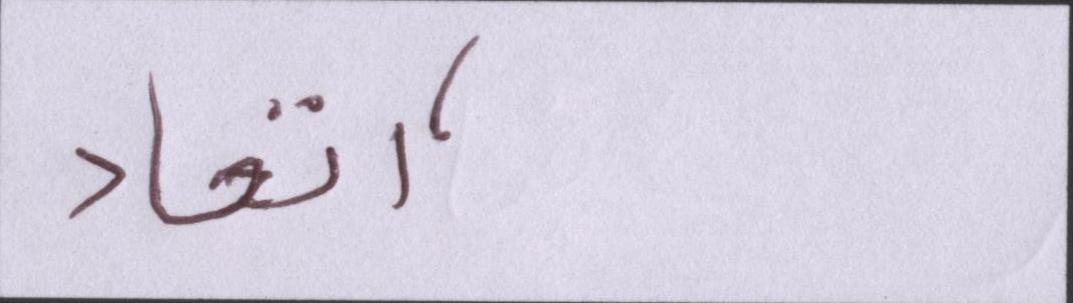 ، اتحاد